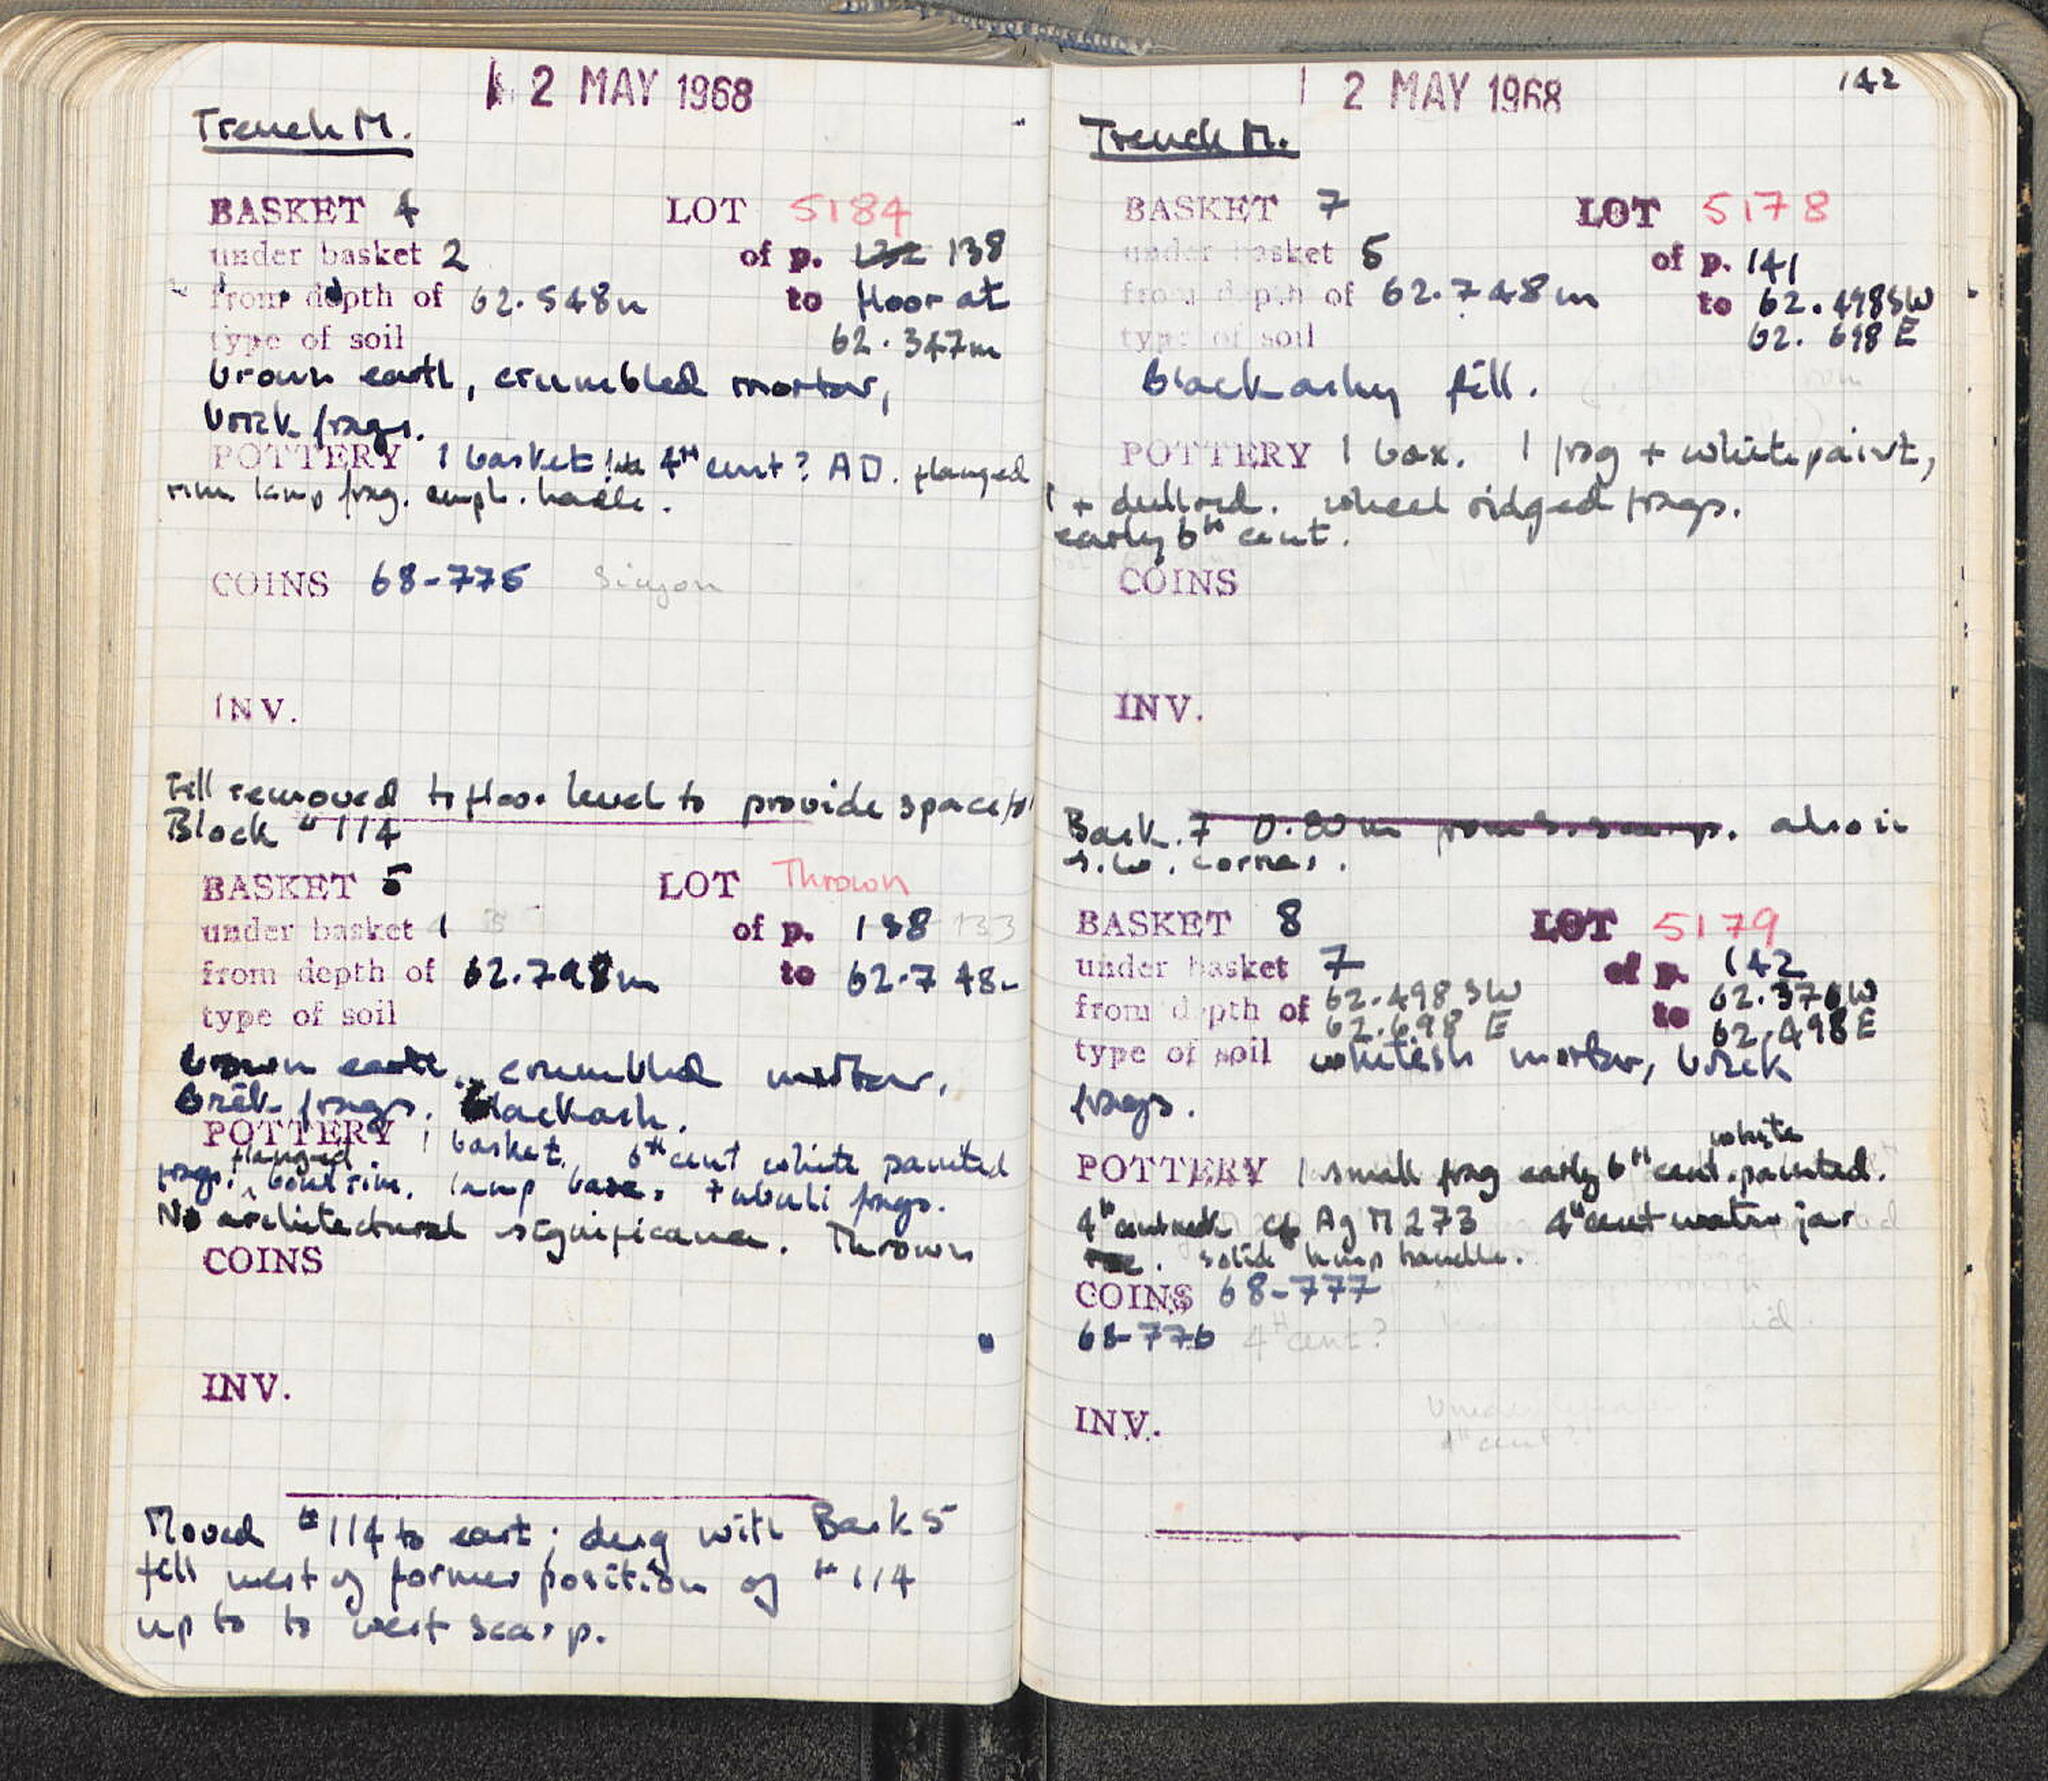 2 MAY 1968
Trench M.
BASKET 4 LOT 5184
under basket 2 of p. 138
from depth of 62.548m to floor at
type of soil 62.347m
brown earth, crumbled mortar,
brick frags.
POTTERY 1 basket late 4th cent? AD. flanged
rim lamp frag. amph. handle.
COINS 68-775 Sicyon
INV.
Fill removed to floor level to provide space for
Block #114
BASKET 5 LOT Thrown
under basket 1 of p. 138 133
from depth of 62.798m to 62.748m
type of soil
brown earth, crumbled mortar,
brick frags. black ash.
POTTERY 1 basket. 6th cent white painted
frags. flanged bowl rim. lamp base. tubuli frags.
No architectural significance. Thrown
COINS
INV.
Moved #114 to east; dug with Bask 5
fill west of former position of #114
up to to west scarp.
1 2 MAY 1968 142
Trench M.
BASKET 7 LOT 5178
under basket 5 of p. 141
from depth of 62.748m to 62.498SW
type of soil 62.698 E
black ashy fill.
POTTERY 1 box. 1 frag + white paint,
1 + dull red. wheel ridged frags.
early 6th cent.
COINS
INV.
Bask. 7 0.80m from S. scarp. also in
S.W. corner.
BASKET 8 LOT 5179
under basket 7 of p. 142
from depth of 62.498 SW to 62.376W
62.698 E 62.498E
type of soil whitish mortar, brick
frags.
POTTERY 1 small frag early 6th cent. white painted.
4th cent neck cf Ag M 273 4th cent water jar
solid lamp handle.
COINS 68-777
68-776 4th cent?
4th cent?
INV.